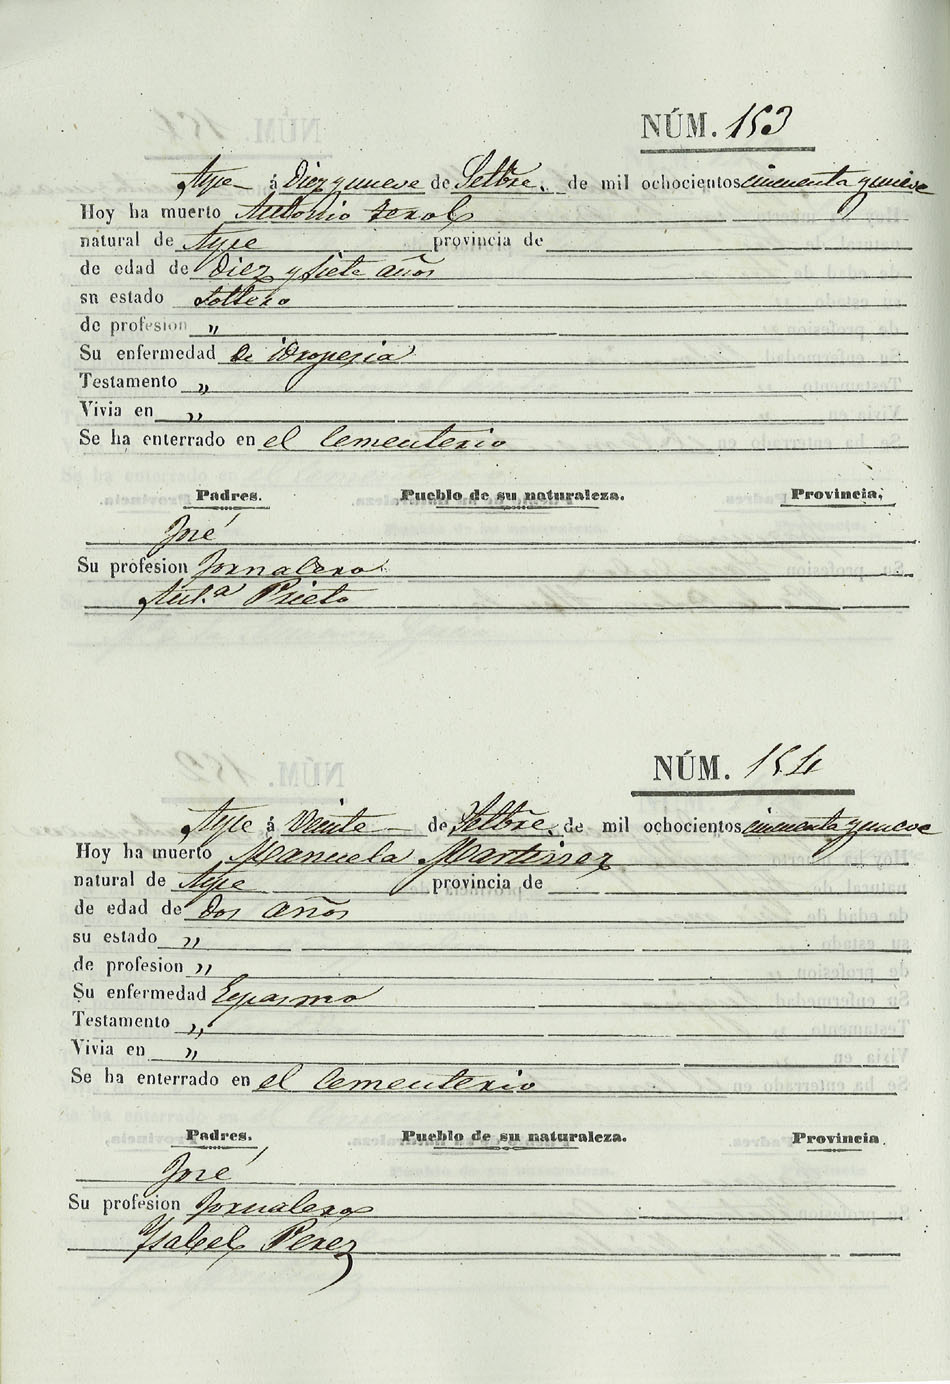 NÚM. 153
Aspe á Diez y nueve de Setbre. de mil ochocientos cincuenta y nueve
Hoy ha muerto Antonio Zerol
natural de Aspe provincia de
de edad de Diez y siete años
su estado Soltero
de profesion "
Su enfermedad de idropesia
Testamento "
Vivia en "
Se ha enterrado en el Cementerio
Padres. Pueblo de su naturaleza. Provincia.
José
Su profesion Jornalero
Ant.ª Prieto
NÚM. 154
Aspe á Veinte de Setbre. de mil ochocientos cincuenta y nueve
Hoy ha muerto Manuela Martinez
natural de Aspe provincia de
de edad de Dos años
su estado "
de profesion "
Su enfermedad Espasmo
Testamento "
Vivia en "
Se ha enterrado en el Cementerio
Padres. Pueblo de su naturaleza. Provincia
José
Su profesion Jornalero
Ysabel Perez